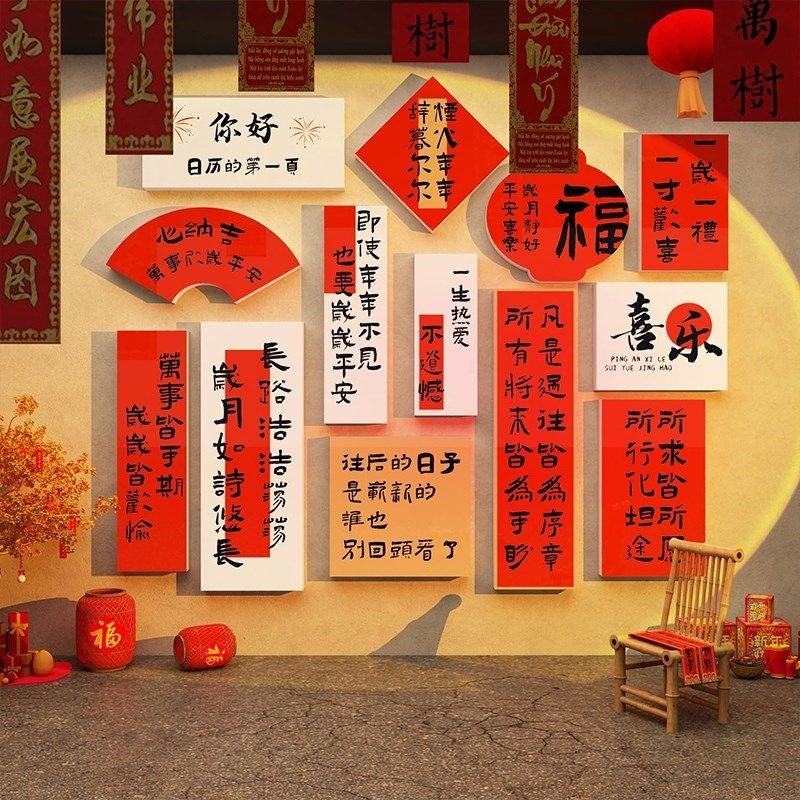 如意展宏图
伟业
Như
Ý
樹
萬樹
你好
日历的第一頁
煙火年年
辞暮尔尔
福
歲月靜好
平安喜樂
一歲一禮
一寸歡喜
心納吉
萬事歲平安
即使年年不見
也要歲歲平安
一生热爱
不遺憾
喜乐
PING AN XI LE
SUI YUE JING HAO
萬事皆可期
歲歲皆歡愉
長路浩浩荡荡
歲月如詩悠長
往后的日子
是嶄新的
誰也
别回頭看了
凡是過往皆為序章
所有將来皆為可盼
所求皆所愿
所行化坦途
福
新年